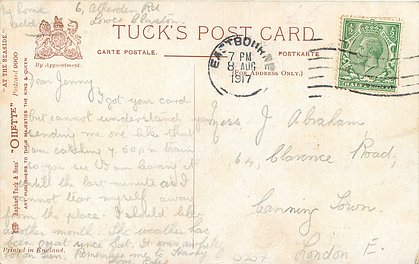 6, Atherden Rd
Lower Clapton
TUCK'S POST CARD.
CARTE POSTALE.
POSTKARTE
By Appointment.
(FOR ADDRESS ONLY.)
EASTBOURNE
7 PM
8 AUG
1917
"AT THE SEASIDE."
"OILETTE"
Raphael Tuck & Sons'
ART PUBLISHERS TO THEIR MAJESTIES THE KING & QUEEN
Dear Jenny
I got your card
but cannot understand you
sending me one like that
I am catching 4.50 pm train
so you see I am leaving it
until the last minute as I
cannot tear myself away
from the place. I should like
another month. The weather has
been great since Sat. It was awfully
hot in sun. Remember me to Harry
Love
Miss. J Abraham
64, Clarence Road,
Canning Town.
London E.
Printed in England.